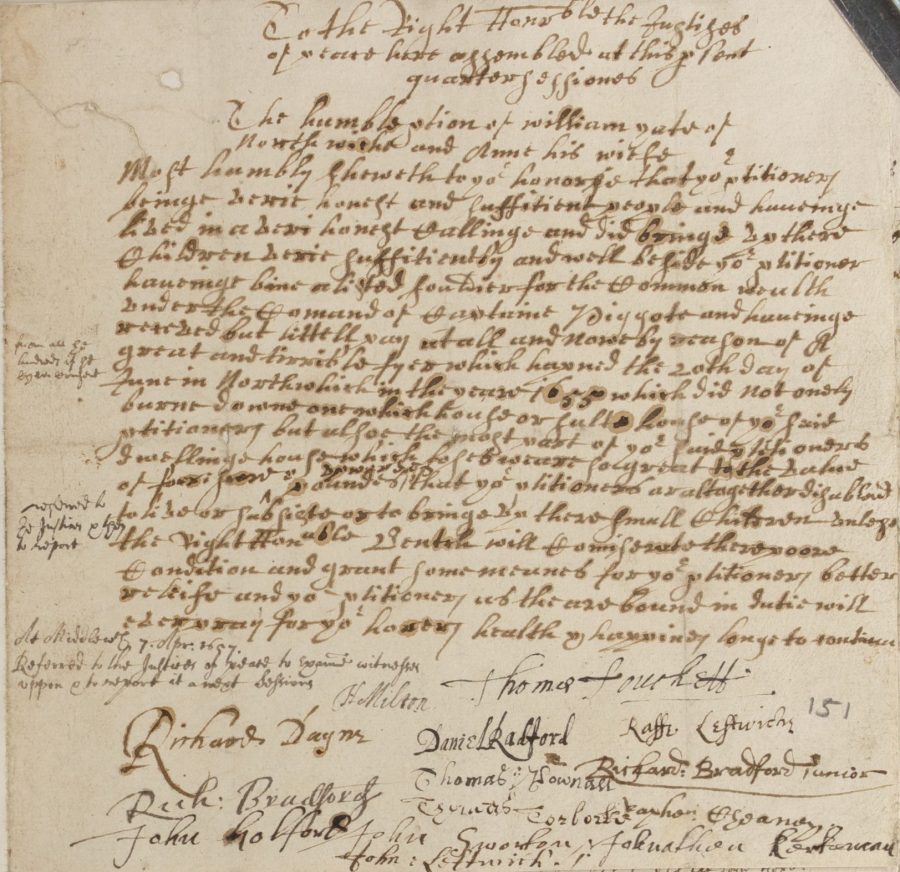 To the Right Honrble the Justizes
of peace here assembled at this psent
quartersessiones
The humble ption of william yate of
Northwiche and Anne his wiffe
Most humbly sheweth to yor honors that yor ptitioners
beinge verie honest and suffitient people and haveinge
lived in a veri honest Callinge and did bringe up there
Children verie suffitiently and well beside yor ptitioner
haveinge bine a listed souldier for the Common wealth
under the Comand of Captaine Piggote and haveinge
receved but littell pay at all and nowe by reason of A
great and tirrible fyer which hapned the 20th day of
June in Northwhich in the yeare 1655 which did not onely
burne downe one which house or sault house of yor said
ptitioners but alsoe the most part of yor said ptitioners
dwellinge house which losses weare soe great to the value
of forescore pounds & upwardes that yor ptitioners ar altogether disabled
to live or subsiste or to bringe up there small Children unlesse
the Right Honable Bentch will Comiserate there poore
Condition and grant some meanes for yor ptitioners better
releife and yor ptitioners as the are bound in dutie will
ever pray for yor honors health & happines longe to continu
from all the
hundreds of the
referred to
the Justices
to report
At Middlewch 7. Apr. 1657
Referred to the Justices of peace to examine witnesses
uppon & to report it a next Sessions
Milton
Thomas Touchett
151
Richard Dayne
Daniel Radford
Raffe Leftwiche
Thomas Pownall
Richard: Bradford Junior
Rich: Bradford
Thomas
John Holford
John
Johnathen
John: Leftwich